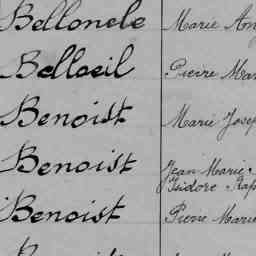 Bellonele Marie An
Belloeil Pierre Mar
Benoist Marie Josep
Benoist Jean Marie
Isidore Rap
Benoist Pierre Marie